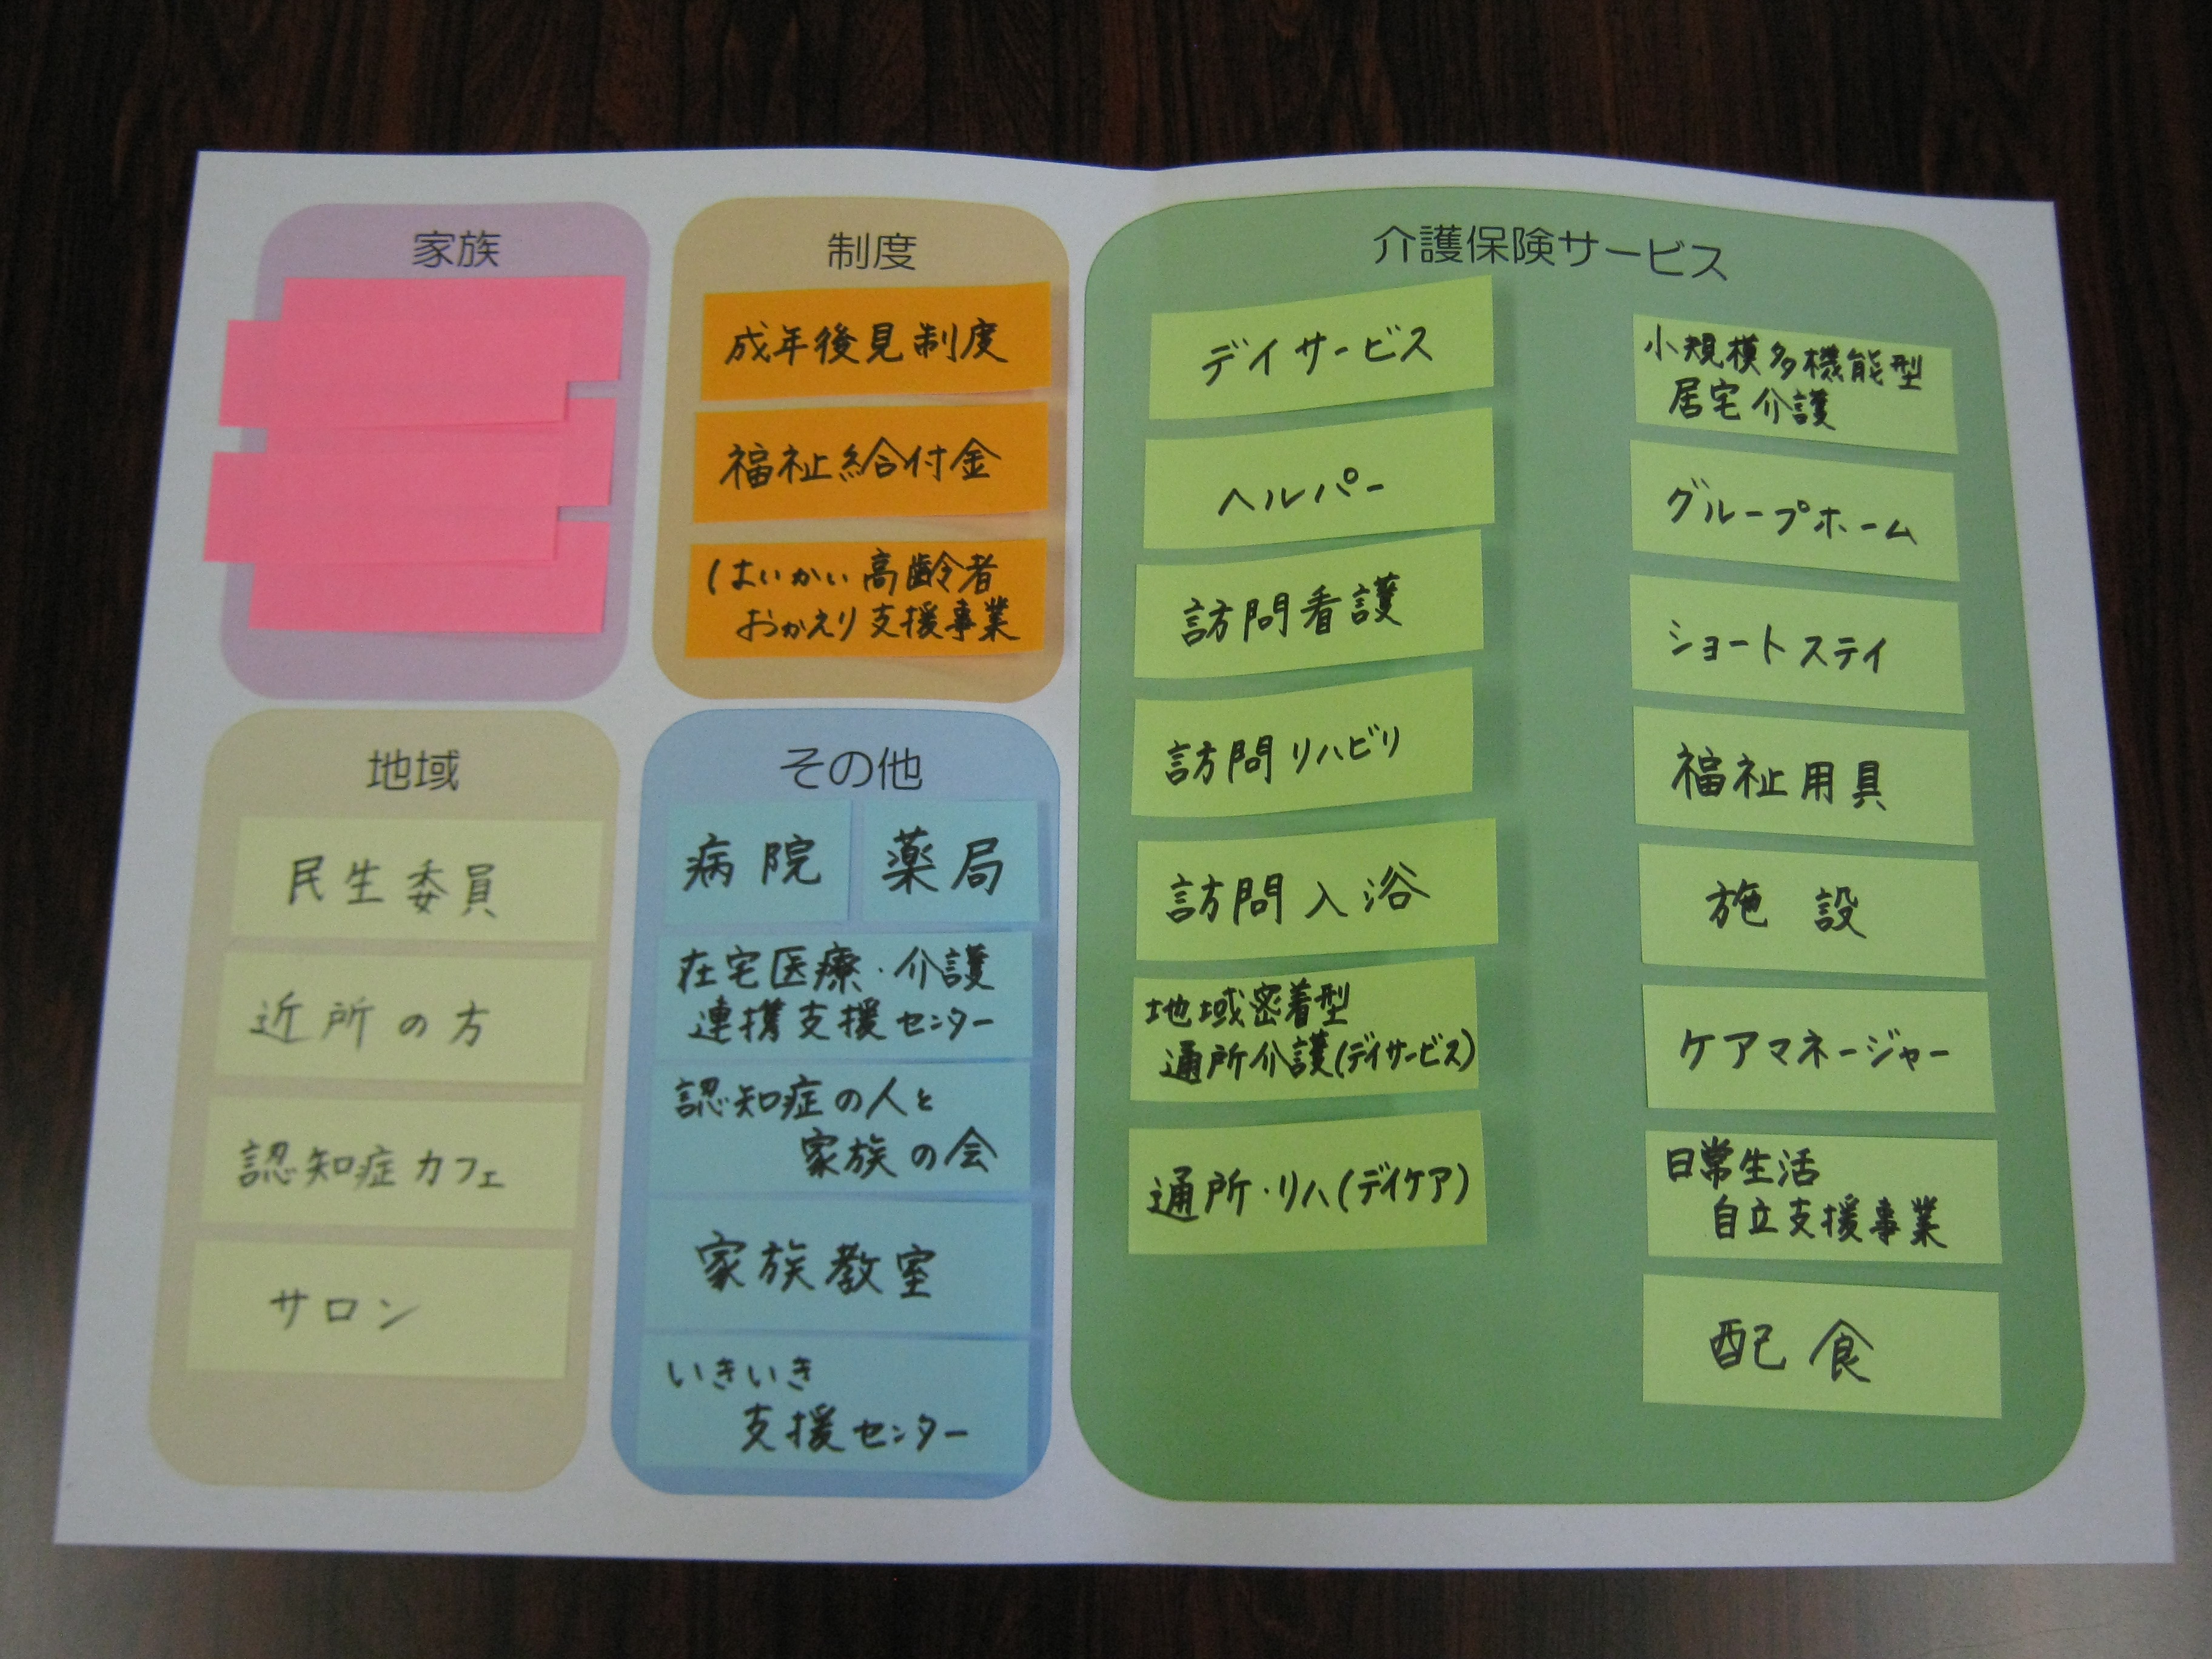 家族
制度
成年後見制度
福祉給付金
はいかい高齢者
おかえり支援事業
地域
民生委員
近所の方
認知症カフェ
サロン
その他
病院
薬局
在宅医療・介護
連携支援センター
認知症の人と
家族の会
家族教室
いきいき
支援センター
介護保険サービス
デイサービス
ヘルパー
訪問看護
訪問リハビリ
訪問入浴
地域密着型
通所介護(デイサービス)
通所・リハ(デイケア)
小規模多機能型
居宅介護
グループホーム
ショートステイ
福祉用具
施設
ケアマネージャー
日常生活
自立支援事業
配食